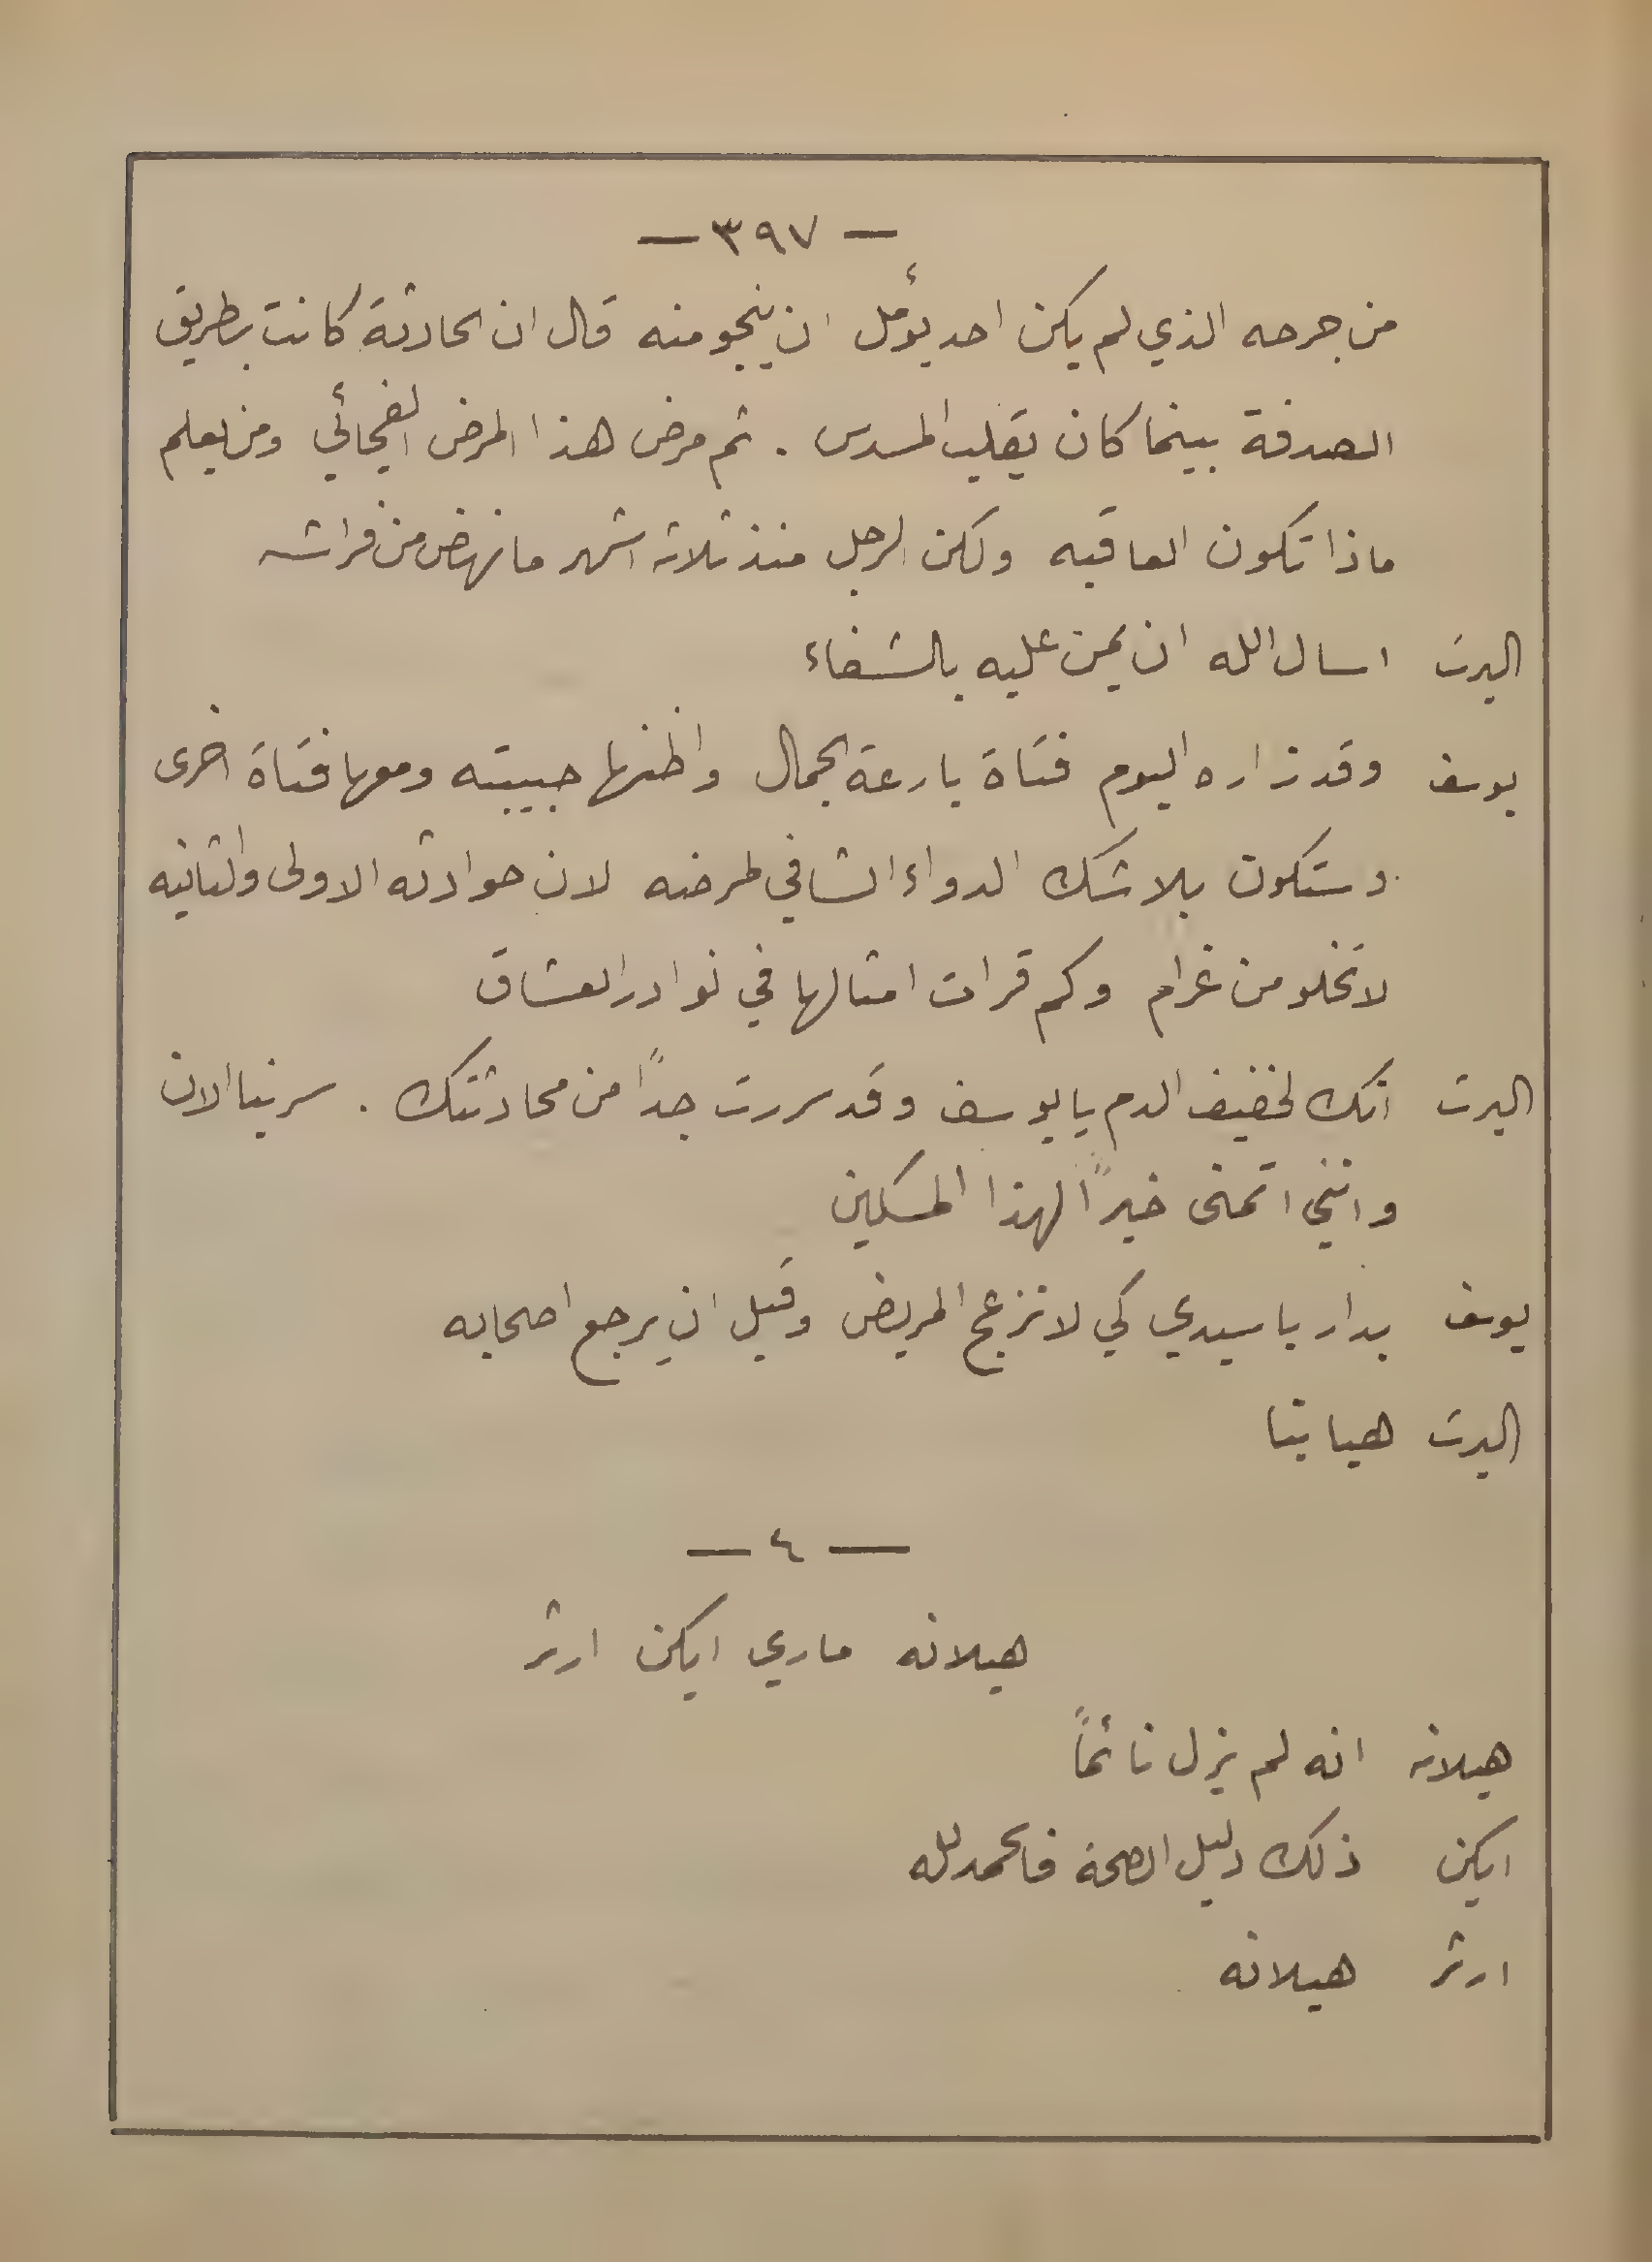 — ٣٩٧ —
من جرحه الذي لم يكن احد يؤمل ان ينجو منه قال ان الحادثة كانت بطريق
الصدفة بينما كان يقلب المسدس . ثم مرض هذا المرض الفجائي ومن يعلم
ماذا تكون العاقبه ولكن الرجل منذ ثلاثه اشهر ما نهض من فراشه
البرت اسال الله ان يمن عليه بالشفاء
يوسف وقد زاره اليوم فتاة بارعة الجمال واظنها حبيبته ومعها فتاة اخرى
وستكون بلا شك الدواء الشافي لمرضه لان حوادثه الاولى والثانيه
لا تخلو من غرام وكم قرات امثالها في نوادر العشاق
البرت انك لخفيف الدم يا يوسف وقد سررت جداً من محادثتك . سر بنا الان
وانني اتمنى خيراً لهذا المسكين
يوسف بدار يا سيدي كي لا نزعج المريض وقبل ان يرجع اصحابه
البرت هيا بنا
— ٤ —
هيلانه ماري ايكن ارثر
هيلانه انه لم يزل نائماً
ايكن ذلك دليل الصحة فالحمد لله
ارثر هيلانه